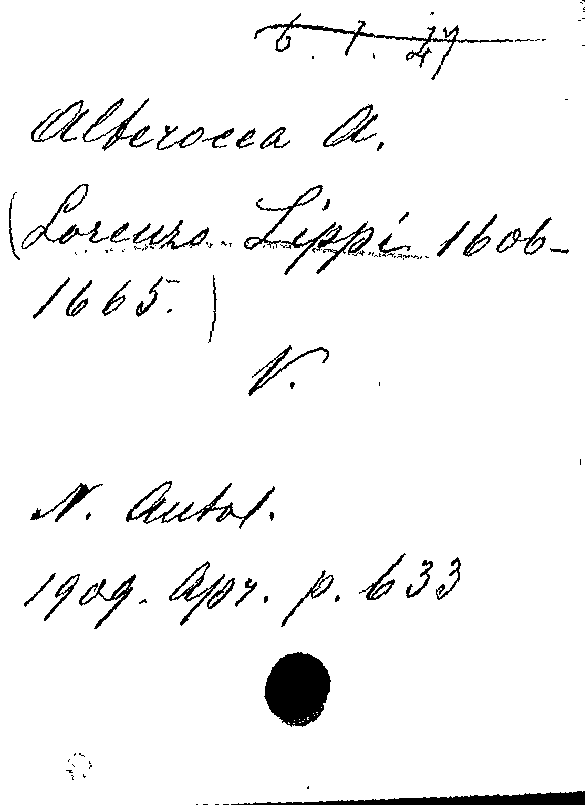 Alterocca A.
(Lorenzo Lippi 1606-
1665.)
V.
N. Antol.
1909. Apr. p. 633